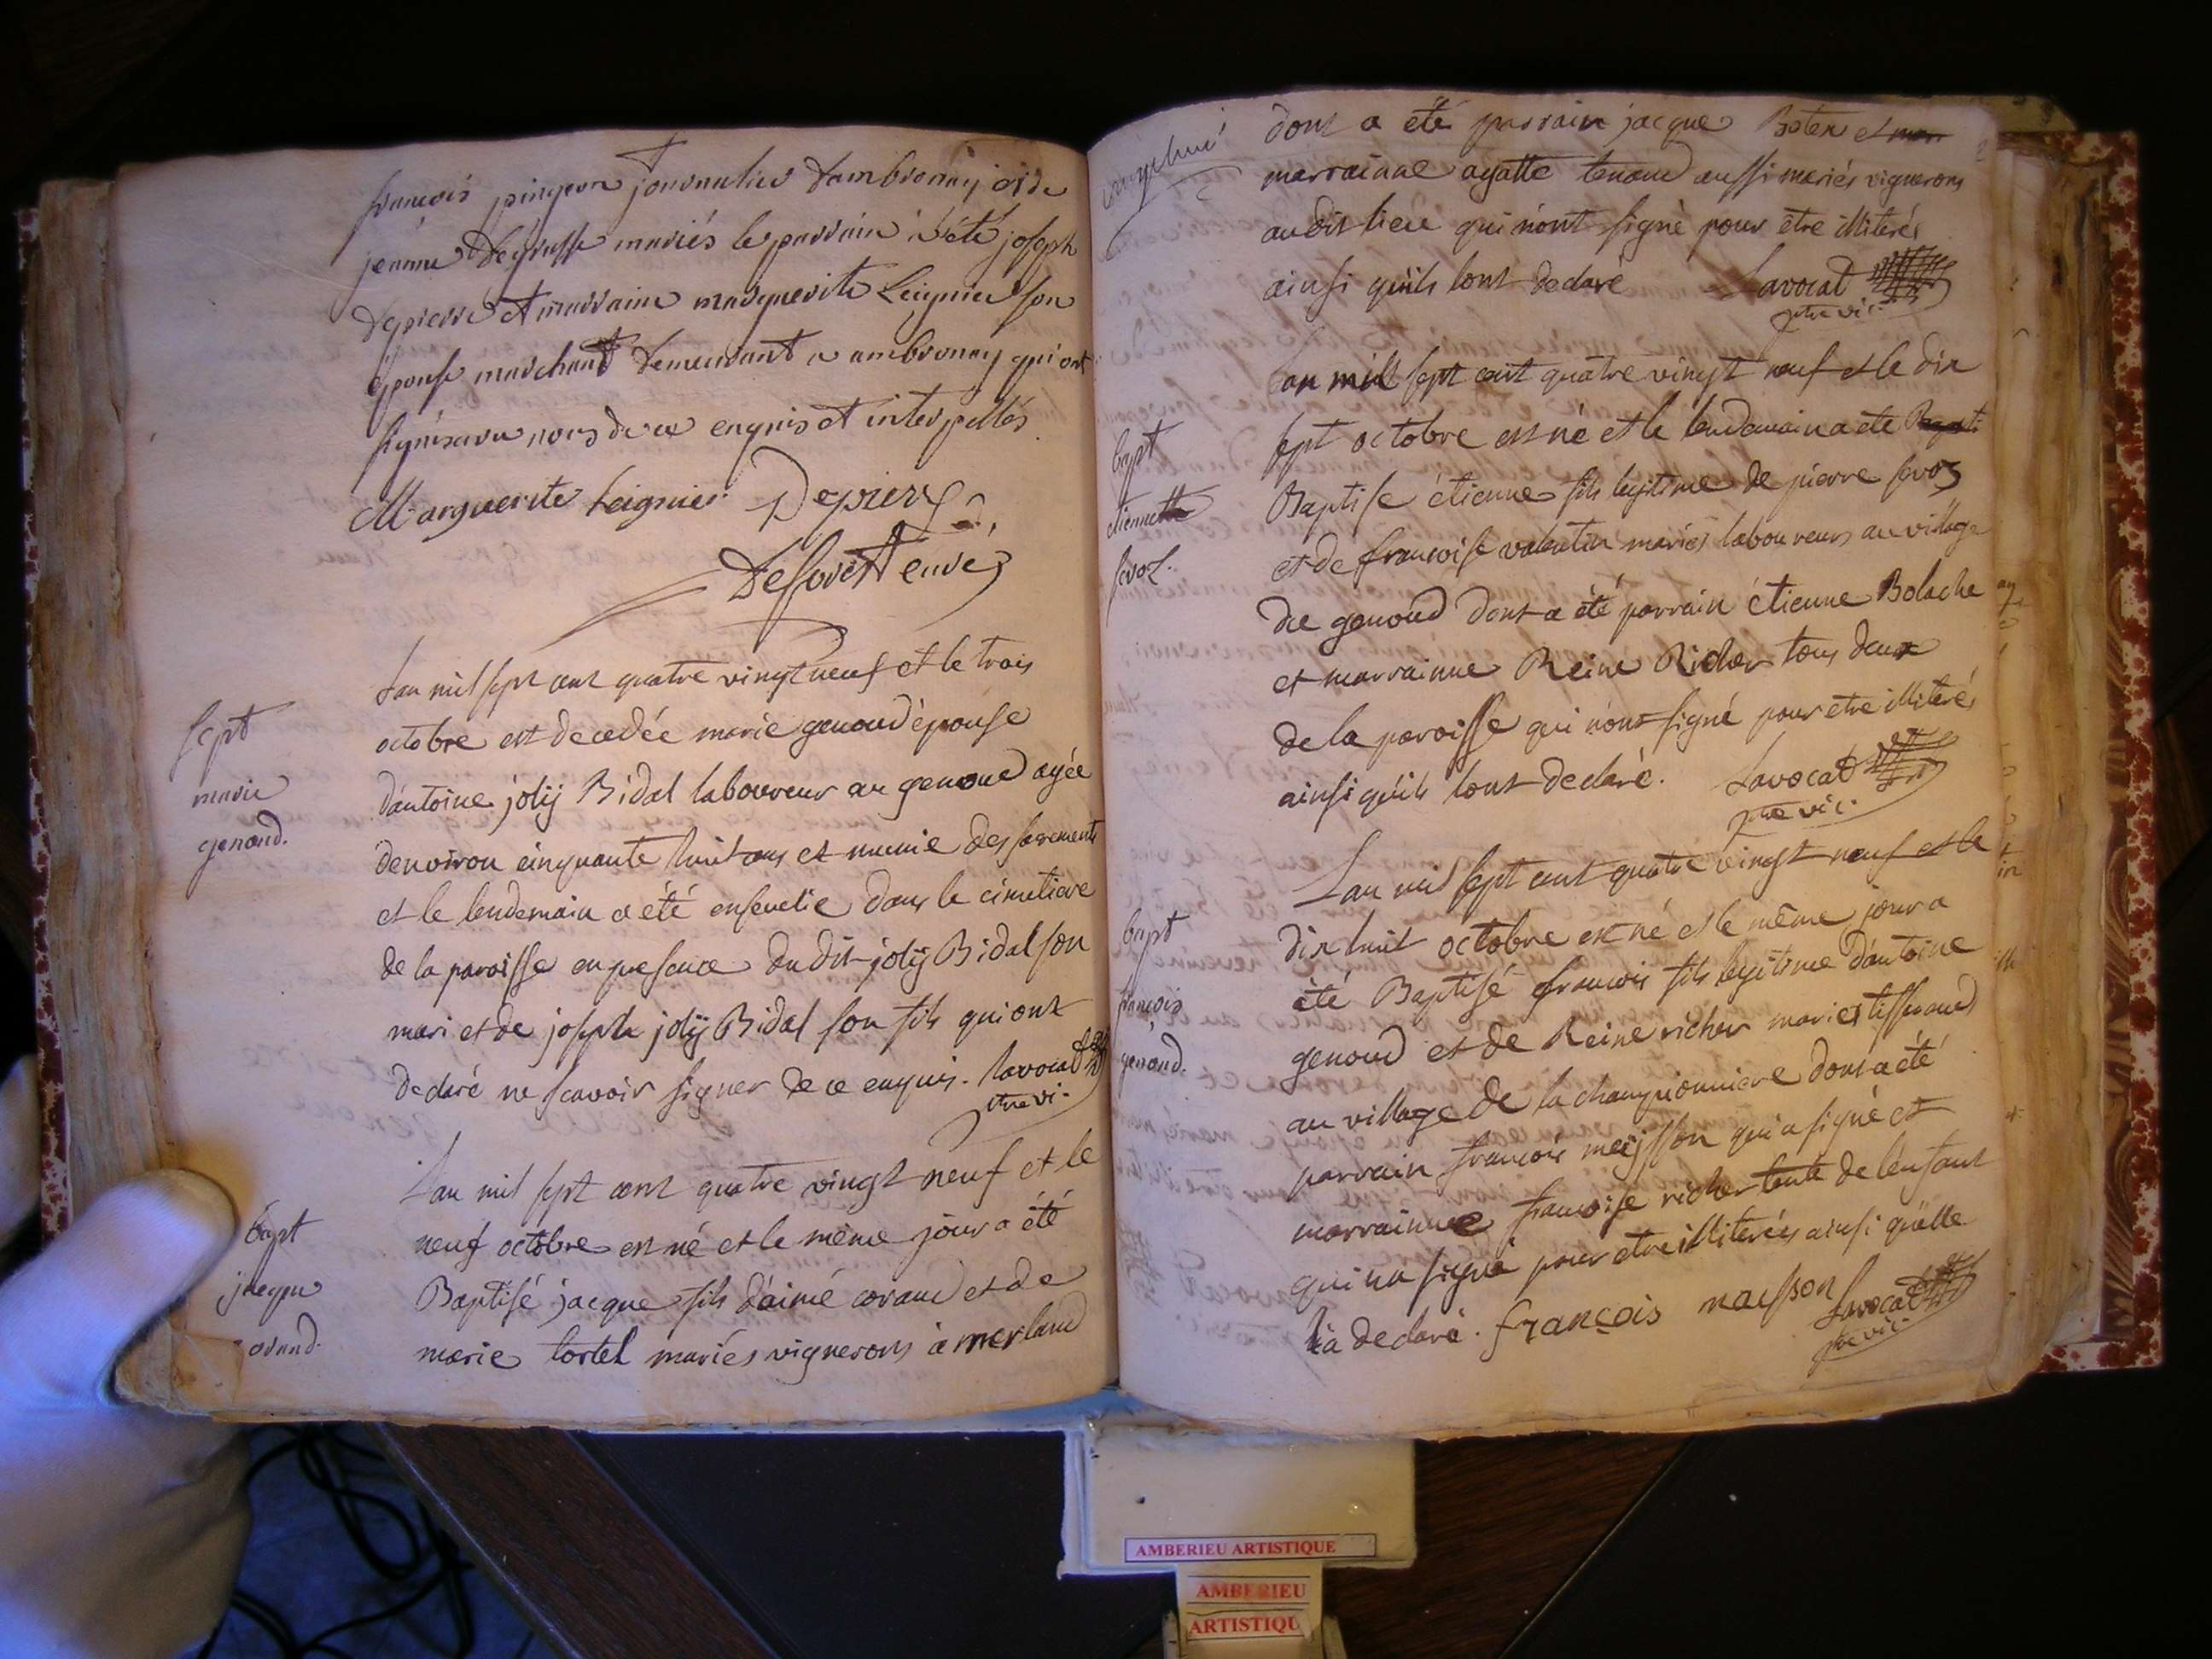 francois pingeon journalier dambronay et de
jeanne degrasse mariés le parrain a été joseph
depierre et marraine marguerite Leignier son
épouse marchant demeurant a ambronay qui ont
signés avec nous de ce enquis et interpellés
Marguerite Leignier Depierre
Deforest curé
Lan mil sept cent quatre vingt neuf et le trois
octobre est decedée marie genoud épouse
d'antoine jolÿ Bidal laboureur au genoud agée
denviron cinquante huit ans et munie des sacrements
et le lendemain a été ensevelie dans le cimetiere
de la paroisse en presence du dit jolÿ Bidal son
mari et de joseph jolÿ Bidal son fils qui ont
declaré ne scavoir signer de ce enquis. Lavocat
ptre vi.
sept
marie
genoud.
Lan mil sept cent quatre vingt neuf et le
neuf octobre est né et le même jour a été
Baptisé jacque fils d'aimé corand et de
marie tortel mariés vignerons à merland
bapt
jacque
corand.
dont a été parrain jacque et
marrainne agatte tenand aussi mariés vignerons
au dit lieu qui n'ont signé pour être illiterés
ainsi qu'ils lont declaré Lavocat
ptre vic.
Lan mil sept cent quatre vingt neuf et le dix
sept octobre est né et le lendemain a ete
Baptisé étienne fils legitime de pierre
et de francoise valentin mariés laboureurs au village
de genoud dont a été parrain étienne Bolache
et marrainne Reine Richer tous deux
de la paroisse qui n'ont signé pour etre illiterés
ainsi qu'ils lont declaré. Lavocat
ptre vic.
bapt
étienne
Lan mil sept cent quatre vingt neuf et le
dix huit octobre est né et le même jour a
été Baptisé francois fils legitime d'antoine
genoud et de Reine richer mariés tisserand
au village de la championniere dont a été
parrain francois meÿsson qui a signé et
marrainne francoise richer tente de lénfant
qui na signé pour etre illiterés ainsi qu'elle
la declaré. françois maisson Lavocat
ptre vic.
bapt
francois
genoud.
AMBERIEU ARTISTIQUE
AMBERIEU
ARTISTIQU